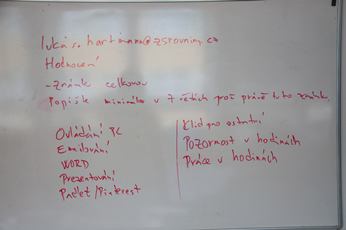 lukas.hartmann@zsrovniny.cz
Hodnocení
- Známk celkovou
Popište minimálně v 7 větách proč právě tuto známk
Ovládání PC
Emailování
WORD
Prezentování
Padlet/Pinterest
Klid pro ostatní
Pozornost v hodinách
Práce v hodinách